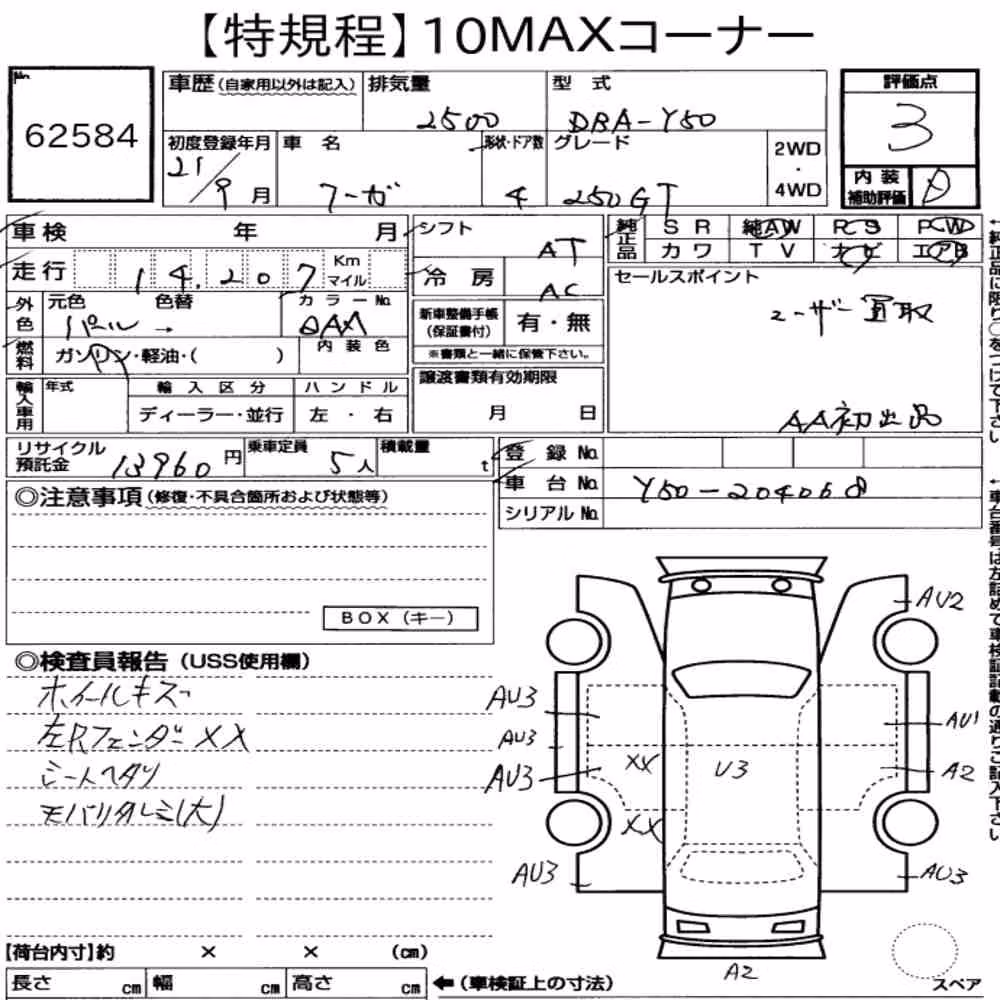 【特規程】10MAXコーナー
No.
62584
車歴 (自家用以外は記入) 排気量 型式
2500 DBA-Y50
初度登録年月 車名 形状・ドア数 グレード 2WD・4WD
21/9月 フーガ 4 250GT
評価点
3
内装補助評価 D
車検 年 月
走行 14.207 Km マイル
外色 元色 色替 カラーNo.
パール →
燃料 ガソリン・軽油・( ) 内装色
輸入車用 年式 輸入区分 ハンドル
ディーラー・並行 左・右
シフト AT
冷房 AC
新車整備手帳(保証書付) 有・無
※書類と一緒に保管下さい。
譲渡書類有効期限
月 日
純正品 SR 純AW PS PW
カワ TV ナビ エアB
セールスポイント
ユーザー買取
AA初出品
←純正品に限り○をつけて下さい
リサイクル預託金 13960円 乗車定員 5人 積載量 t
登録No.
車台No. Y50-204068
シリアルNo.
←車台番号は左詰めで車検証記載の通りご記入下さい
◎注意事項 (修復・不具合箇所および状態等)
BOX (キー)
◎検査員報告 (USS使用欄)
ホイールキズ
左Rフェンダー XX
シートヘタリ
モバリタレミ(大)
AU2
AU3
AU3
AU3
AU1
A2
XX
U3
XX
AU3
AU3
A2
【荷台内寸】約 × × (cm)
長さ cm 幅 cm 高さ cm ←(車検証上の寸法)
スペア